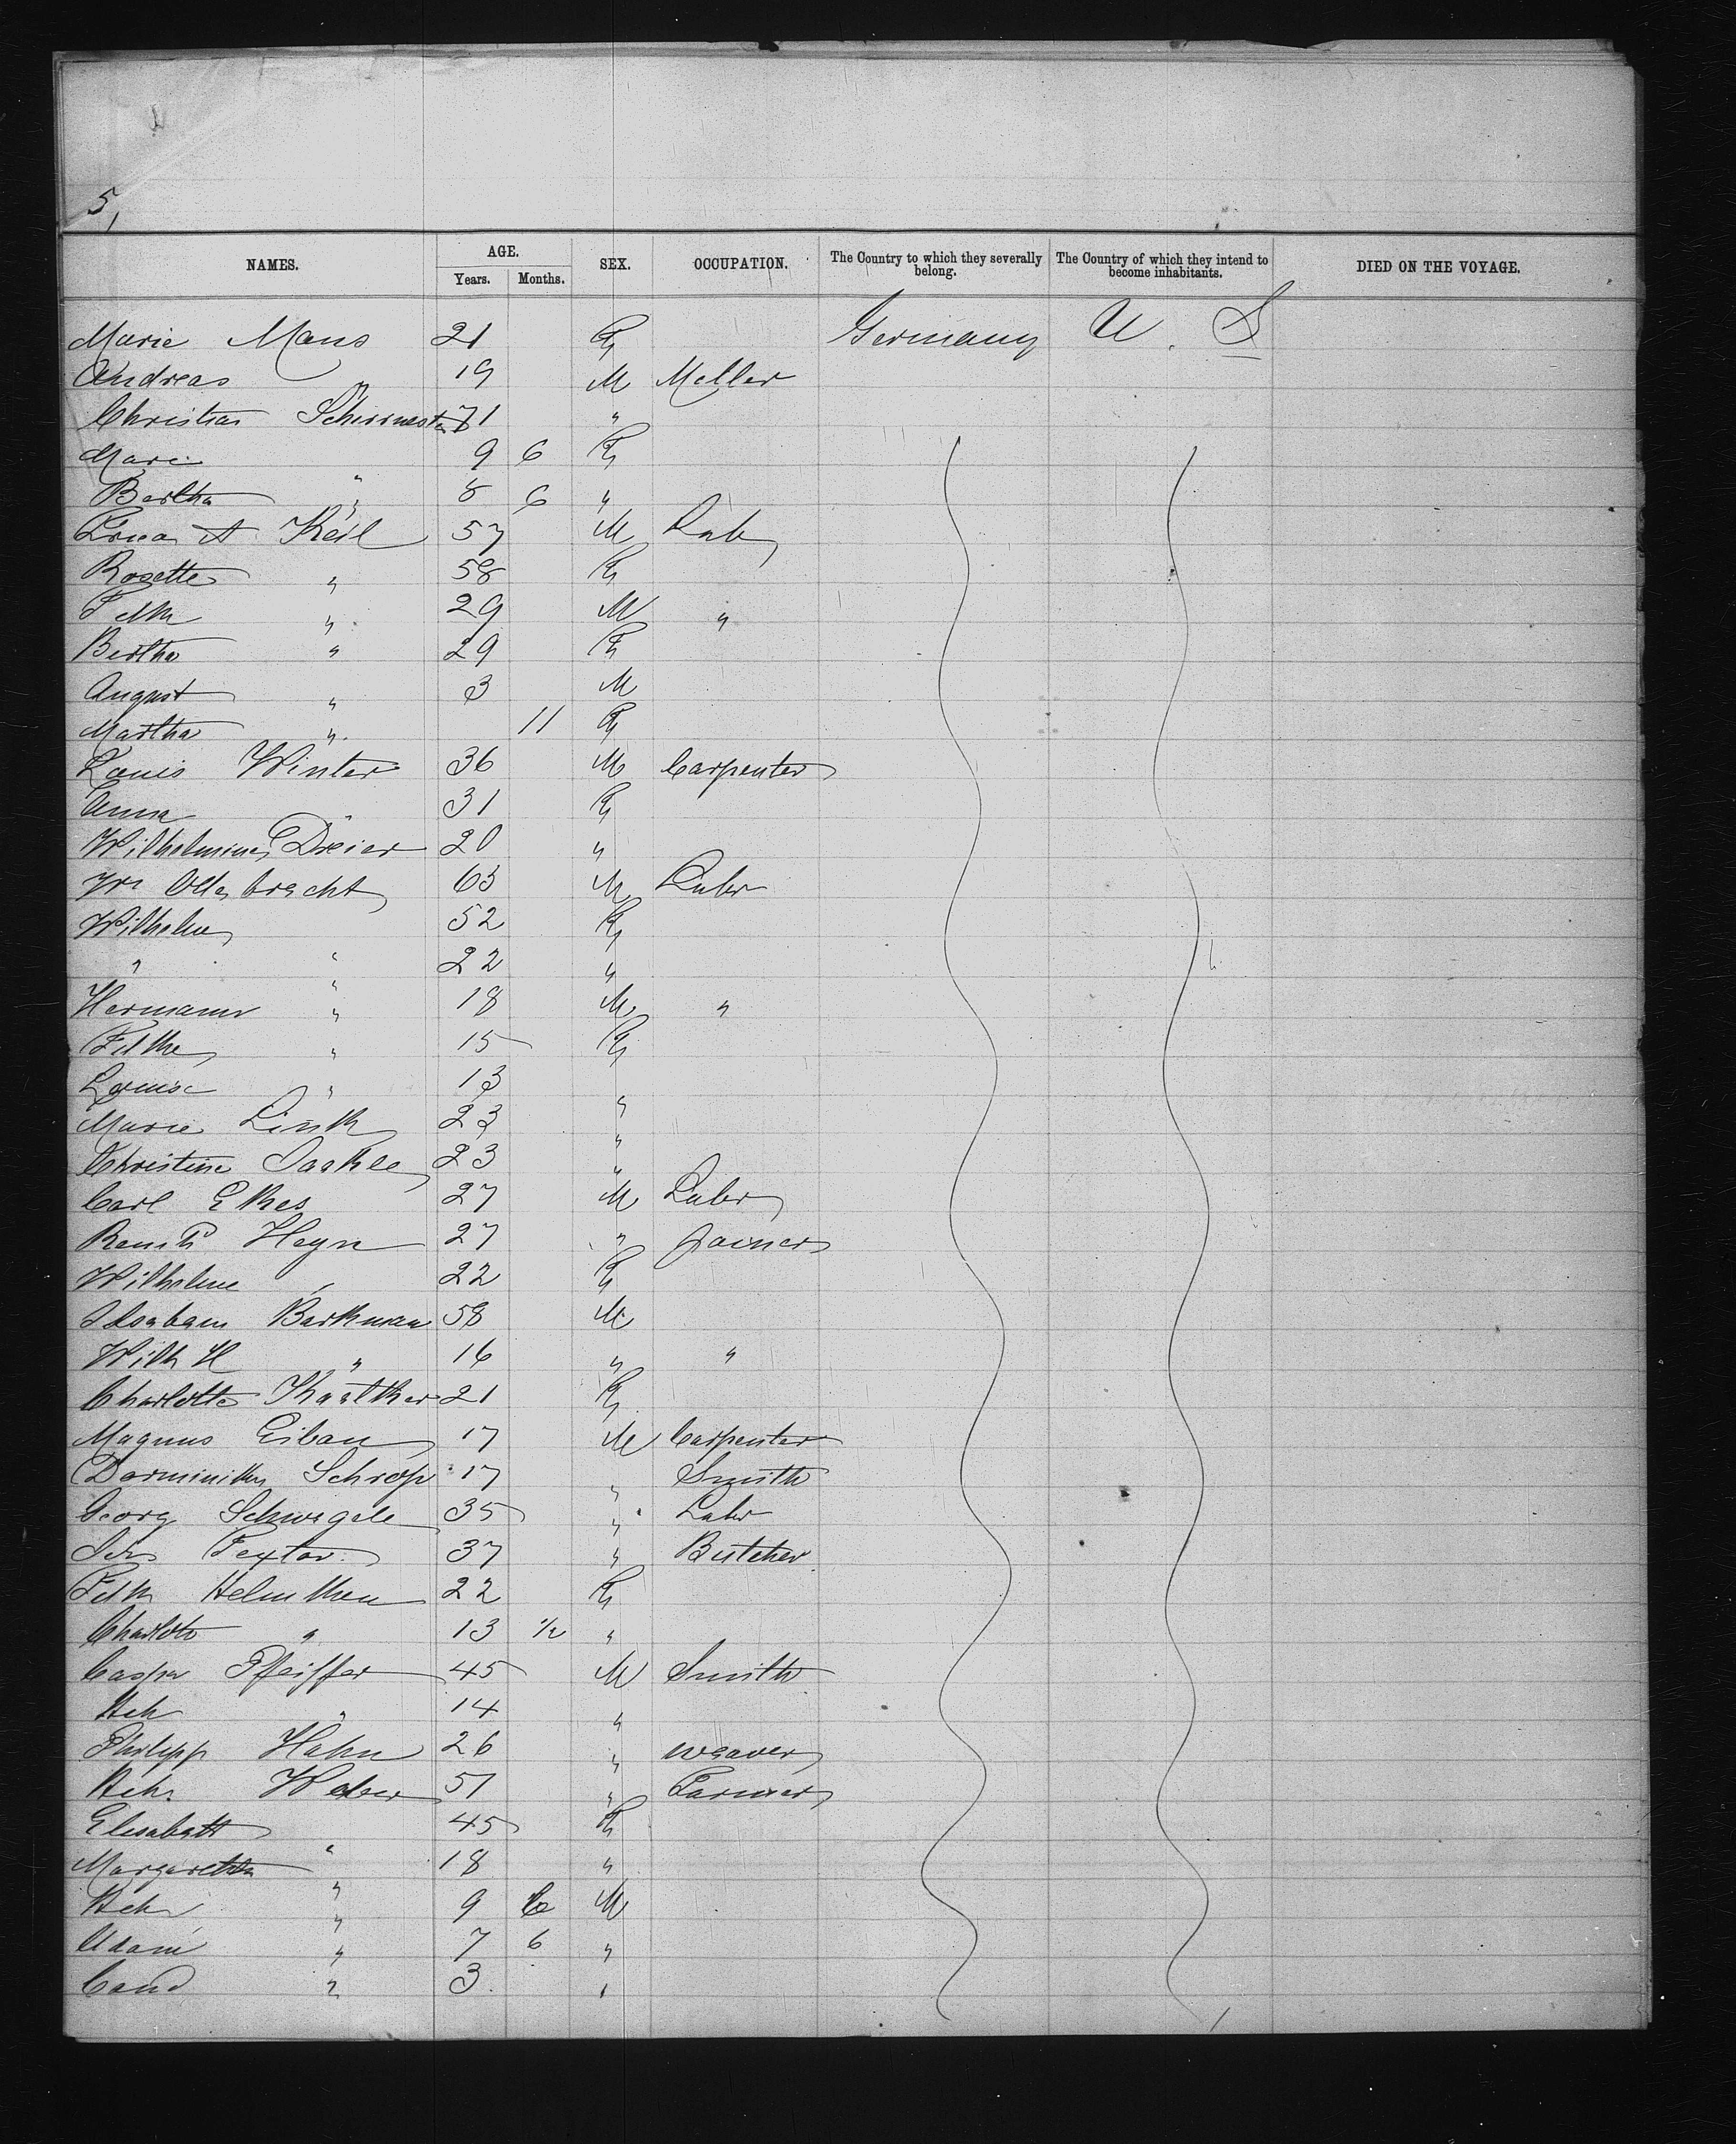 5,
NAMES. AGE. SEX. OCCUPATION. The Country to which they severally belong. The Country of which they intend to become inhabitants. DIED ON THE VOYAGE.
Years. Months.
Marie Mans 21 F Germany U. S
Andreas " 19 M Meller
Christian 71 "
Marie " 9 6 F
Bertha " 8 6 "
A Keil 57 M Labr
Rosette " 58 F
" 29 M "
Bertha " 29 F
August " 3 M
Martha " 11 F
Louis Winter 36 M Carpenter
Anna " 31 F
Wilhelmine Dreier 20 "
Wm 63 M Labr
Wilhelm " 52 F
" " 22 "
Hermann " 18 M "
" 15 F
Louise " 13 "
Marie Link 23 "
Christine 23 "
Carl 27 M Labr
Heyn 27 " Joiner
Wilhelme " 22 F
Barkman 58 M
Wilh H " 16 " "
Charlotte 21 F
Magnus Eiban 17 M Carpenter
Schrop 17 " Smith
Georg Schwegele 35 " Labr
Joh Textor 37 " Butcher
Helmthen 22 F
Charlott " 13 ½ "
Caspar Pfeiffer 45 M Smith
Hch " 14 "
Philipp Hahn 26 " weaver
Hch. Weber 51 " Farmer
Elisabeth " 45 F
Margaretha " 18 "
Hch " 9 6 M
Adam " 7 6 "
" 3 "